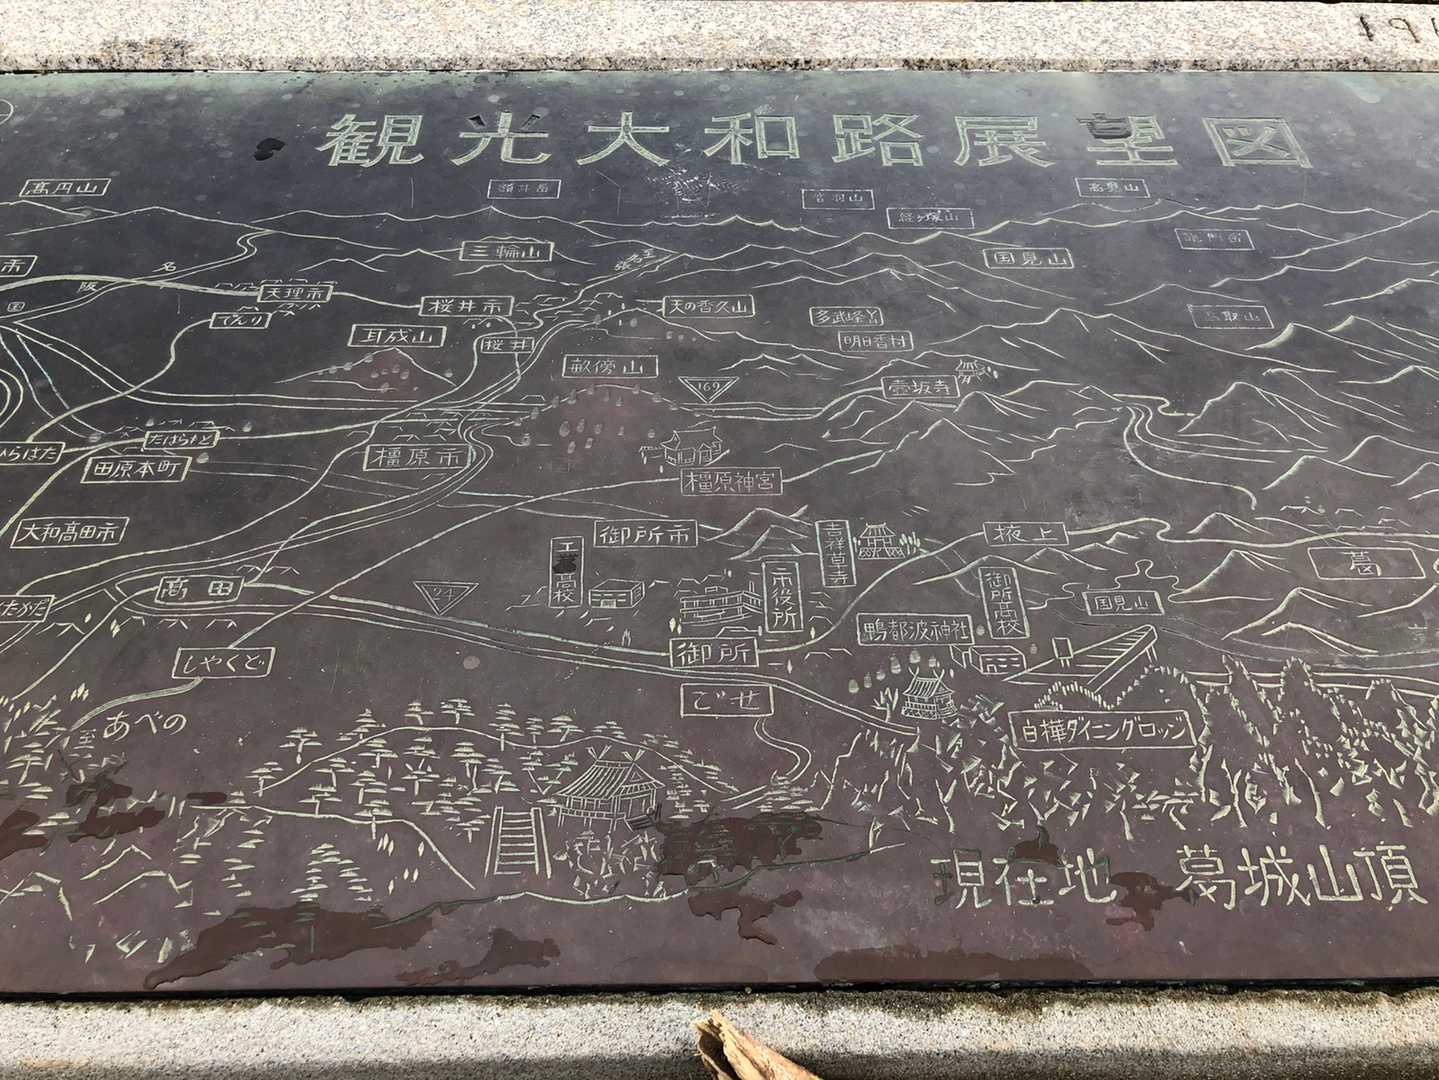 観光大和路展望図
高円山
額井岳
音羽山
経ヶ塚山
高見山
竜門岳
三輪山
国見山
市
名
阪
国
至名張
天理市
てんり
桜井市
桜井
天の香久山
多武峰
明日香村
高取山
耳成山
畝傍山
169
壺坂寺
ひらはた
たはらもと
田原本町
橿原市
橿原神宮
大和高田市
御所市
工業高校
吉祥草寺
掖上
葛
たかだ
高田
24
市役所
御所高校
国見山
鴨都波神社
御所
しゃくど
ごせ
至あべの
白樺ダイニングロッジ
現在地 葛城山頂